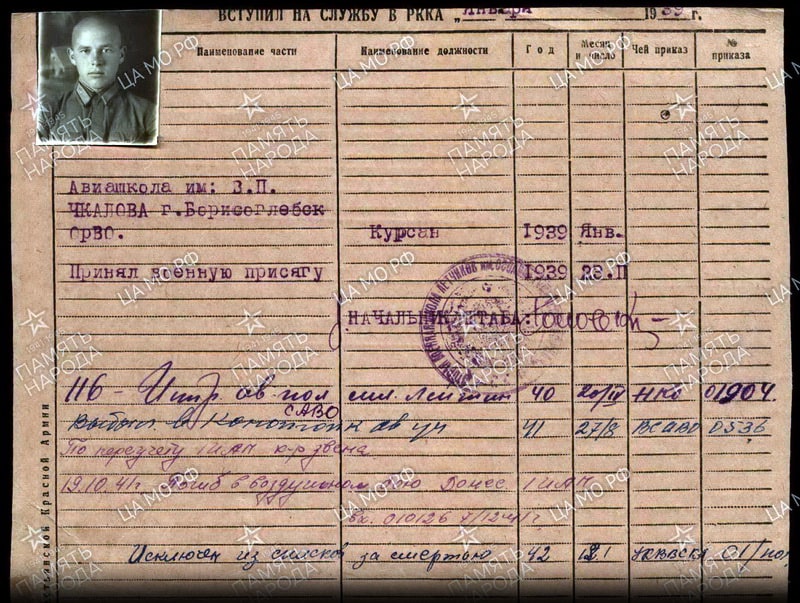 ВСТУПИЛ НА СЛУЖБУ В РККА „ января 1939 г.
Наименование части Наименование должности Год Месяц и число Чей приказ № приказа
Авиашкола им: В.П.
ЧКАЛОВА г.Борисоглебск
ОРВО. Курсан 1939 Янв.
Принял военную присягу 1939 23.П
НАЧАЛЬНИК ШТАБА:
116 - Истр ав пол мл. Лейтин 40 20/III НКО 01904
САВО
Выбыл в ав уч 41 27/8 ВСАВО 0536
По перезчету 1 ИАП к-р звена
19.10.41г Погиб в воздушном бою Донес. 1 ИАП
вх. 010126 7/12-41г
Исключен из списков за смертью 42 01/
тьянской Красной Армии
ПАМЯТЬ НАРОДА
ЦА МО РФ